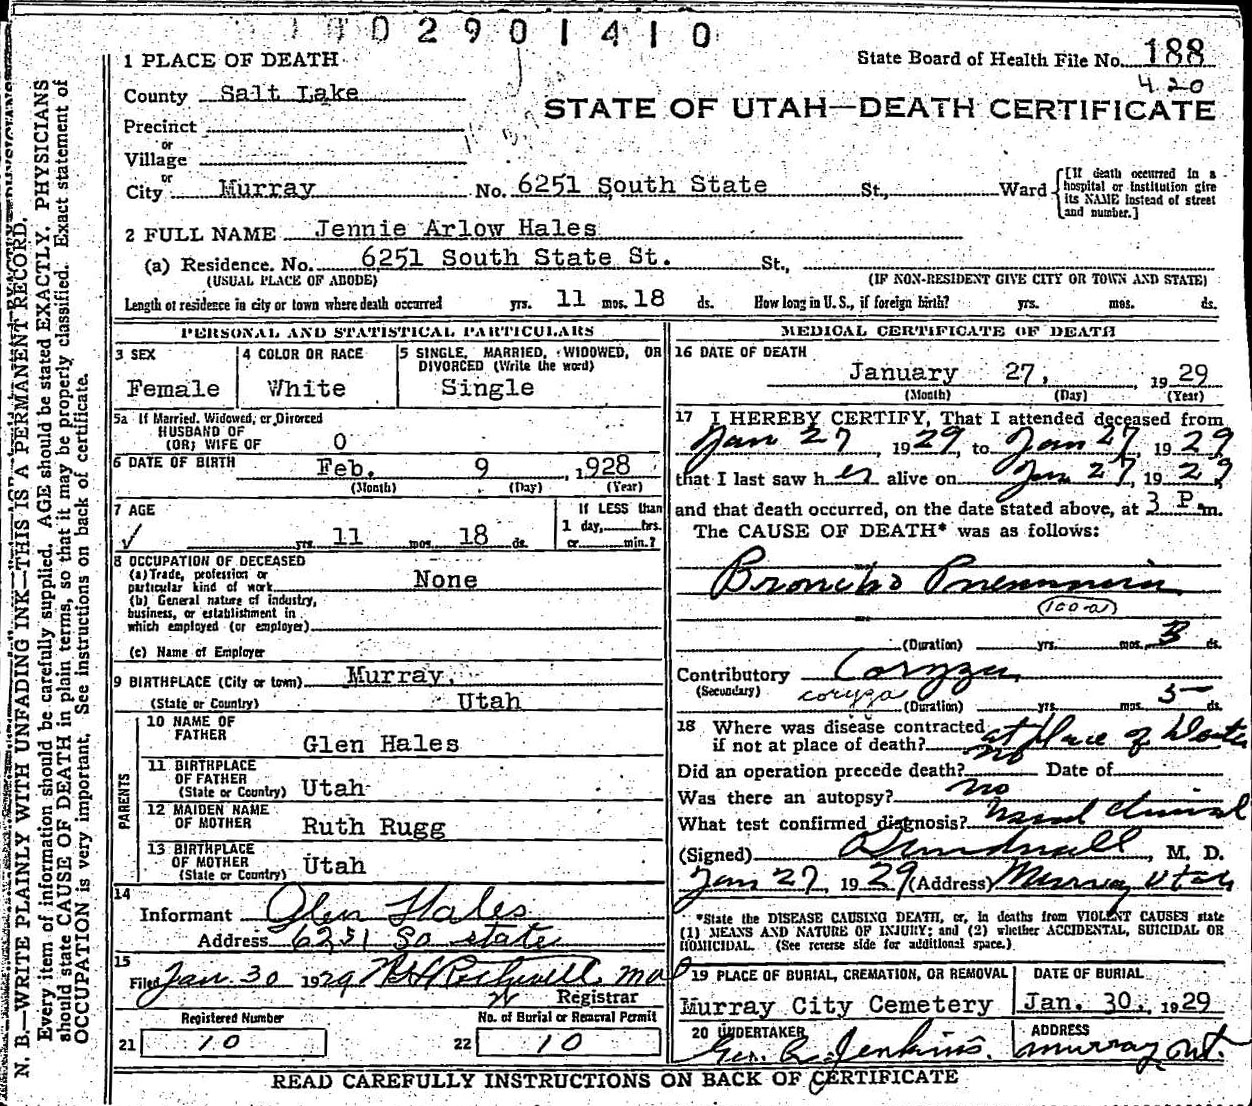 0 2 9 0 1 4 1 0
State Board of Health File No. 188
420
STATE OF UTAH—DEATH CERTIFICATE
1 PLACE OF DEATH
County Salt Lake
Precinct
or
Village
or
City Murray No. 6251 South State St., Ward
[If death occurred in a hospital or institution give its NAME instead of street and number.]
2 FULL NAME Jennie Arlow Hales
(a) Residence. No. 6251 South State St. St.,
(USUAL PLACE OF ABODE) (IF NON-RESIDENT GIVE CITY OR TOWN AND STATE)
Length of residence in city or town where death occurred yrs. 11 mos. 18 ds. How long in U. S., if foreign birth? yrs. mos. ds.
PERSONAL AND STATISTICAL PARTICULARS
3 SEX
Female
4 COLOR OR RACE
White
5 SINGLE, MARRIED, WIDOWED, OR DIVORCED (Write the word)
Single
5a If Married, Widowed, or Divorced
HUSBAND OF
(OR) WIFE OF 0
6 DATE OF BIRTH Feb. 9, 1928
(Month) (Day) (Year)
7 AGE
yrs. 11 mos. 18 ds.
If LESS than
1 day, hrs.
or min.?
8 OCCUPATION OF DECEASED
(a) Trade, profession or
particular kind of work None
(b) General nature of industry,
business, or establishment in
which employed (or employer)
(c) Name of Employer
9 BIRTHPLACE (City or town) Murray,
(State or Country) Utah
PARENTS
10 NAME OF FATHER Glen Hales
11 BIRTHPLACE OF FATHER (State or Country) Utah
12 MAIDEN NAME OF MOTHER Ruth Rugg
13 BIRTHPLACE OF MOTHER (State or Country) Utah
14
Informant Glen Hales
Address 6251 So state
15
Filed Jan. 30 1929 Rockwell MD
Registrar
Registered Number
21 10
No. of Burial or Removal Permit
22 10
MEDICAL CERTIFICATE OF DEATH
16 DATE OF DEATH
January 27, 1929
(Month) (Day) (Year)
17 I HEREBY CERTIFY, That I attended deceased from
Jan 27, 1929, to Jan 27, 1929
that I last saw her alive on Jan 27, 1929
and that death occurred, on the date stated above, at 3 P.m.
The CAUSE OF DEATH* was as follows:
Broncho Pneumonia
100-a
(Duration) yrs. mos. 3 ds.
Contributory Coryza
(Secondary) coryza
(Duration) yrs. mos. 5 ds.
18 Where was disease contracted
if not at place of death? at place of Death
Did an operation precede death? no Date of
Was there an autopsy? no
What test confirmed diagnosis? usual clinical
(Signed) Sundwall, M. D.
Jan 27, 1929 (Address) Murray Utah
*State the DISEASE CAUSING DEATH, or, in deaths from VIOLENT CAUSES state
(1) MEANS AND NATURE OF INJURY; and (2) whether ACCIDENTAL, SUICIDAL OR
HOMICIDAL. (See reverse side for additional space.)
19 PLACE OF BURIAL, CREMATION, OR REMOVAL
Murray City Cemetery
DATE OF BURIAL
Jan. 30, 1929
20 UNDERTAKER
Jenkins.
ADDRESS
Murray Ut.
READ CAREFULLY INSTRUCTIONS ON BACK OF CERTIFICATE
N. B.—WRITE PLAINLY WITH UNFADING INK—THIS IS A PERMANENT RECORD.
Every item of information should be carefully supplied. AGE should be stated EXACTLY. PHYSICIANS
should state CAUSE OF DEATH in plain terms, so that it may be properly classified. Exact statement of
OCCUPATION is very important. See instructions on back of certificate.